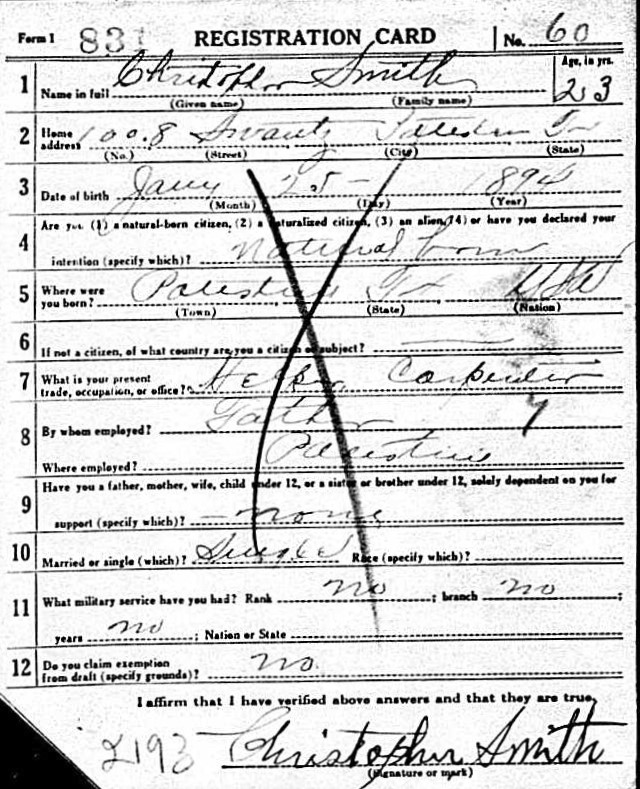 Form 1 831 REGISTRATION CARD No. 60
1 Name in full Christopher Smith Age, in yrs. 23
(Given name) (Family name)
2 Home address 1008 Swantz Palestine Tx
(No.) (Street) (City) (State)
3 Date of birth Jany 25 - 1894
(Month) (Day) (Year)
4 Are you (1) a natural-born citizen, (2) a naturalized citizen, (3) an alien, (4) or have you declared your
intention (specify which)? Natural born
5 Where were you born? Palestine Tx USA
(Town) (State) (Nation)
6 If not a citizen, of what country are you a citizen or subject?
7 What is your present trade, occupation, or office? Helper Carpenter 7
8 By whom employed? Father
Where employed? Palestine
9 Have you a father, mother, wife, child under 12, or a sister or brother under 12, solely dependent on you for
support (specify which)? - none
10 Married or single (which)? Single Race (specify which)?
11 What military service have you had? Rank no ; branch no ;
years no ; Nation or State
12 Do you claim exemption from draft (specify grounds)? no.
I affirm that I have verified above answers and that they are true.
Christopher Smith
(Signature or mark)